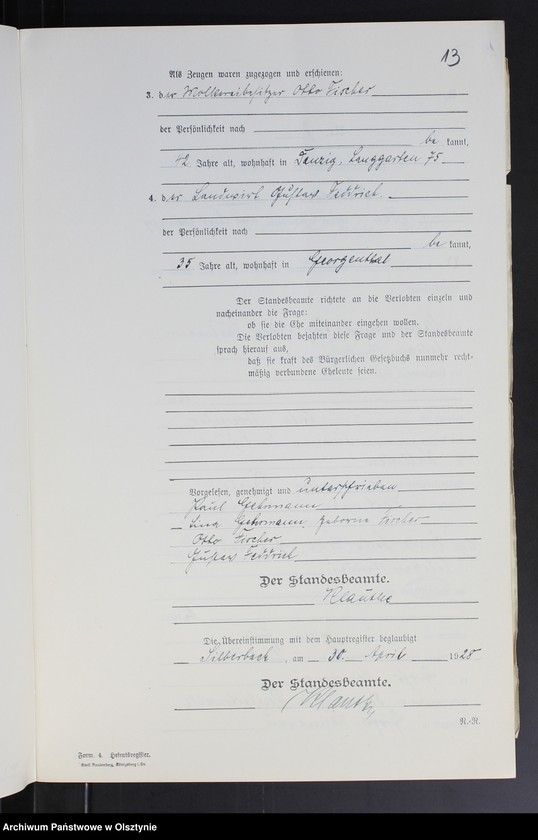 13
Als Zeugen waren zugezogen und erschienen:
3. der Molkereibesitzer Otto Fircher
der Persönlichkeit nach
be kannt,
42 Jahre alt, wohnhaft in Danzig, Langgarten 75
4. der Landwirt Gustav
der Persönlichkeit nach
be kannt,
35 Jahre alt, wohnhaft in Georgenthal
Der Standesbeamte richtete an die Verlobten einzeln und
nacheinander die Frage:
ob sie die Ehe miteinander eingehen wollen.
Die Verlobten bejahten diese Frage und der Standesbeamte
sprach hierauf aus,
daß sie kraft des Bürgerlichen Gesetzbuchs nunmehr recht-
mäßig verbundene Eheleute seien.
Vorgelesen, genehmigt und unterschrieben
Paul Gehrmann
Lina Gehrmann geborne Fircher
Otto Fircher
Gustav
Der Standesbeamte.
Klautke
Die Übereinstimmung mit dem Hauptregister beglaubigt
Silberbach, am 30. April 1925
Der Standesbeamte.
Klautke
N.-R.
Form. 4. Heiratsregister.
Archiwum Państwowe w Olsztynie